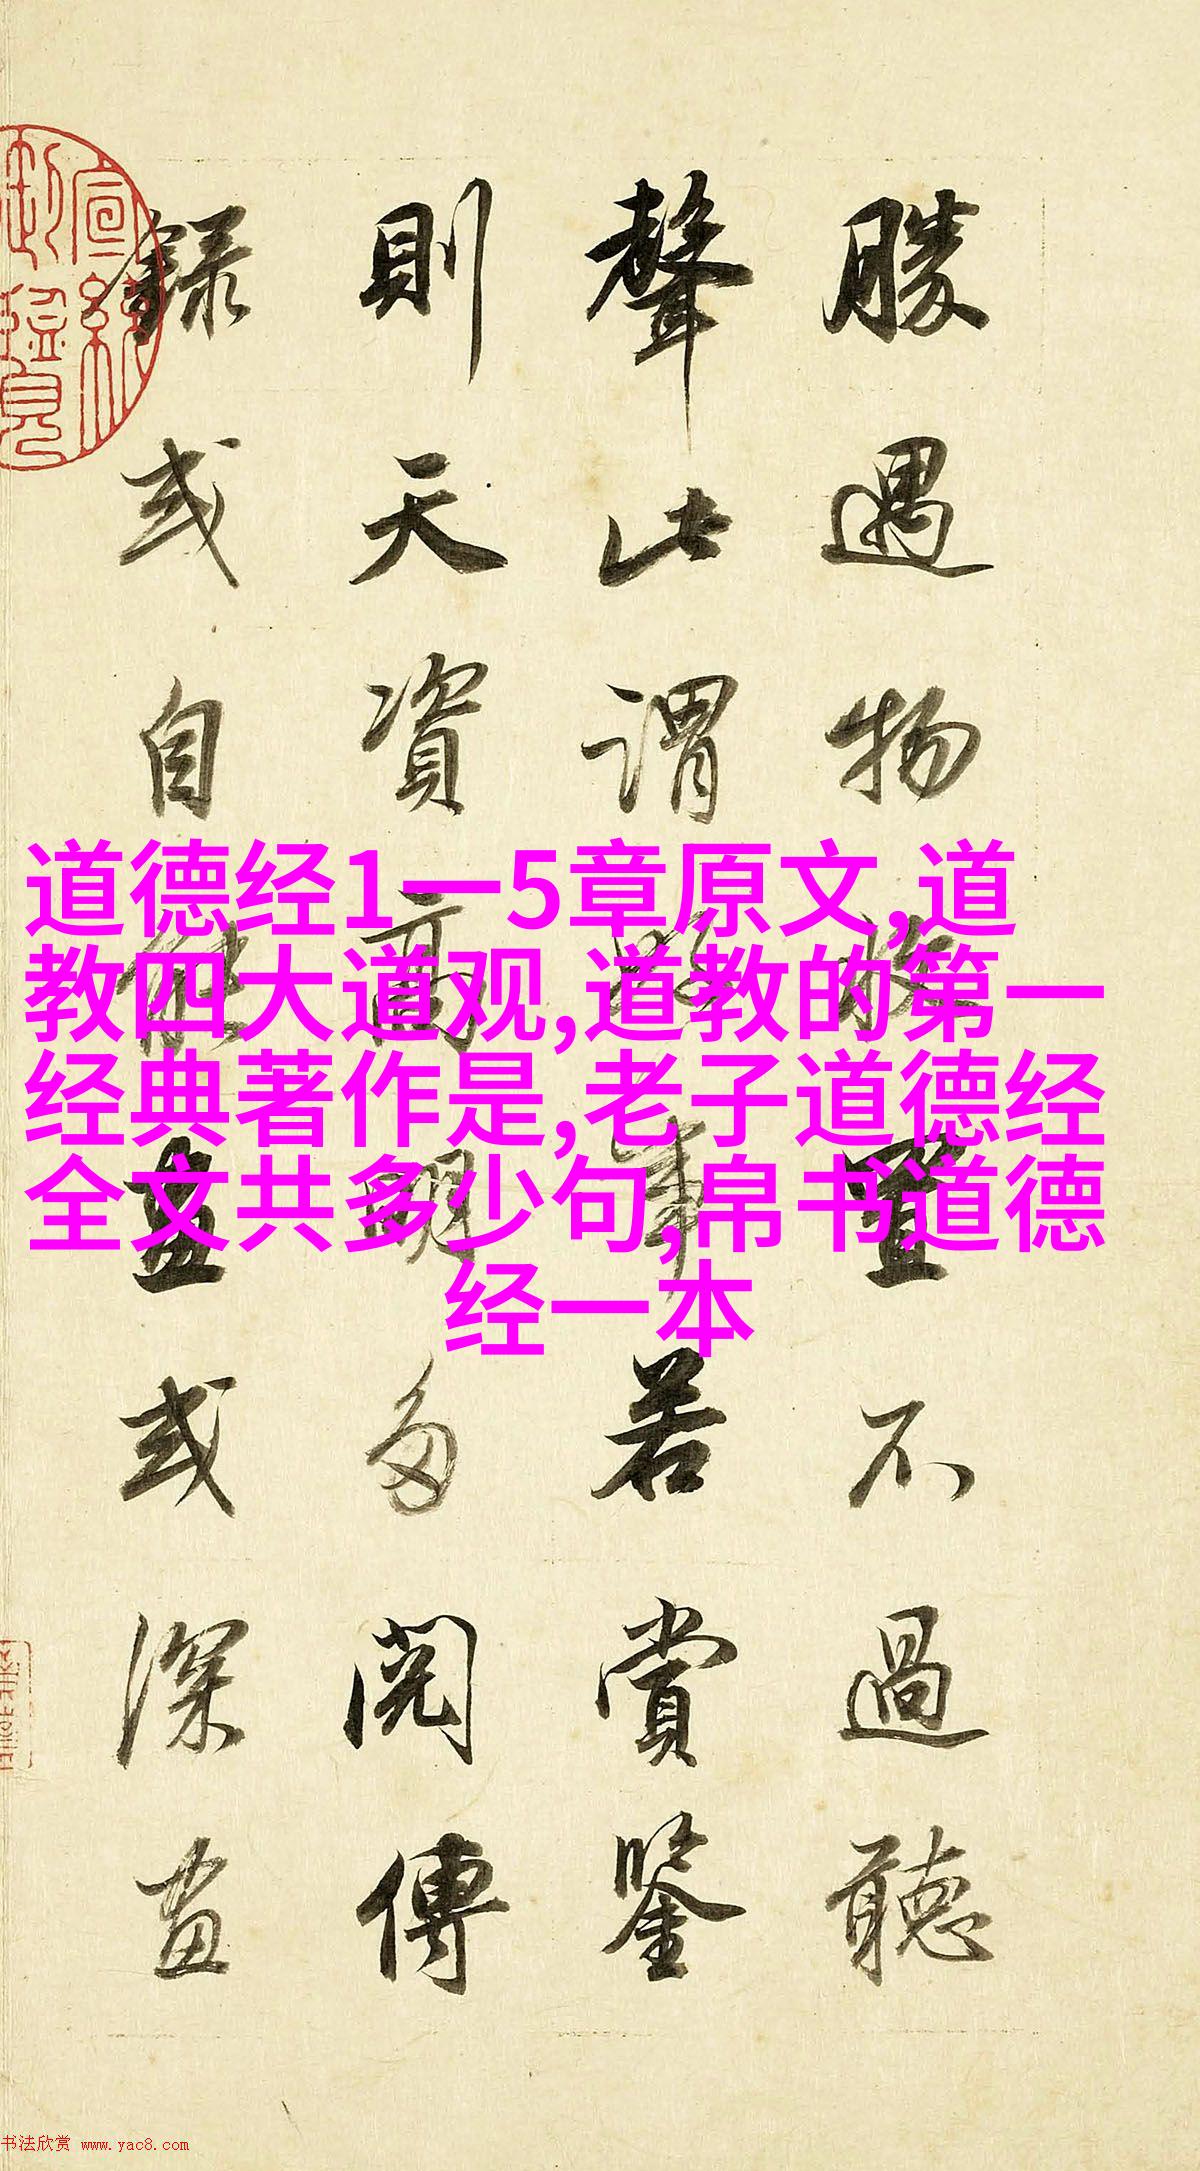 勝遇物收置不過聽
聲此謂好事若賞鑒
則天資高明多閱傳
錄或自能畫或深畫
宣統
御覽
道德经1一5章原文,道
教四大道观,道教的第一
经典著作是,老子道德经
全文共多少句,帛书道德
经一本
书法欣赏 www.yac8.com